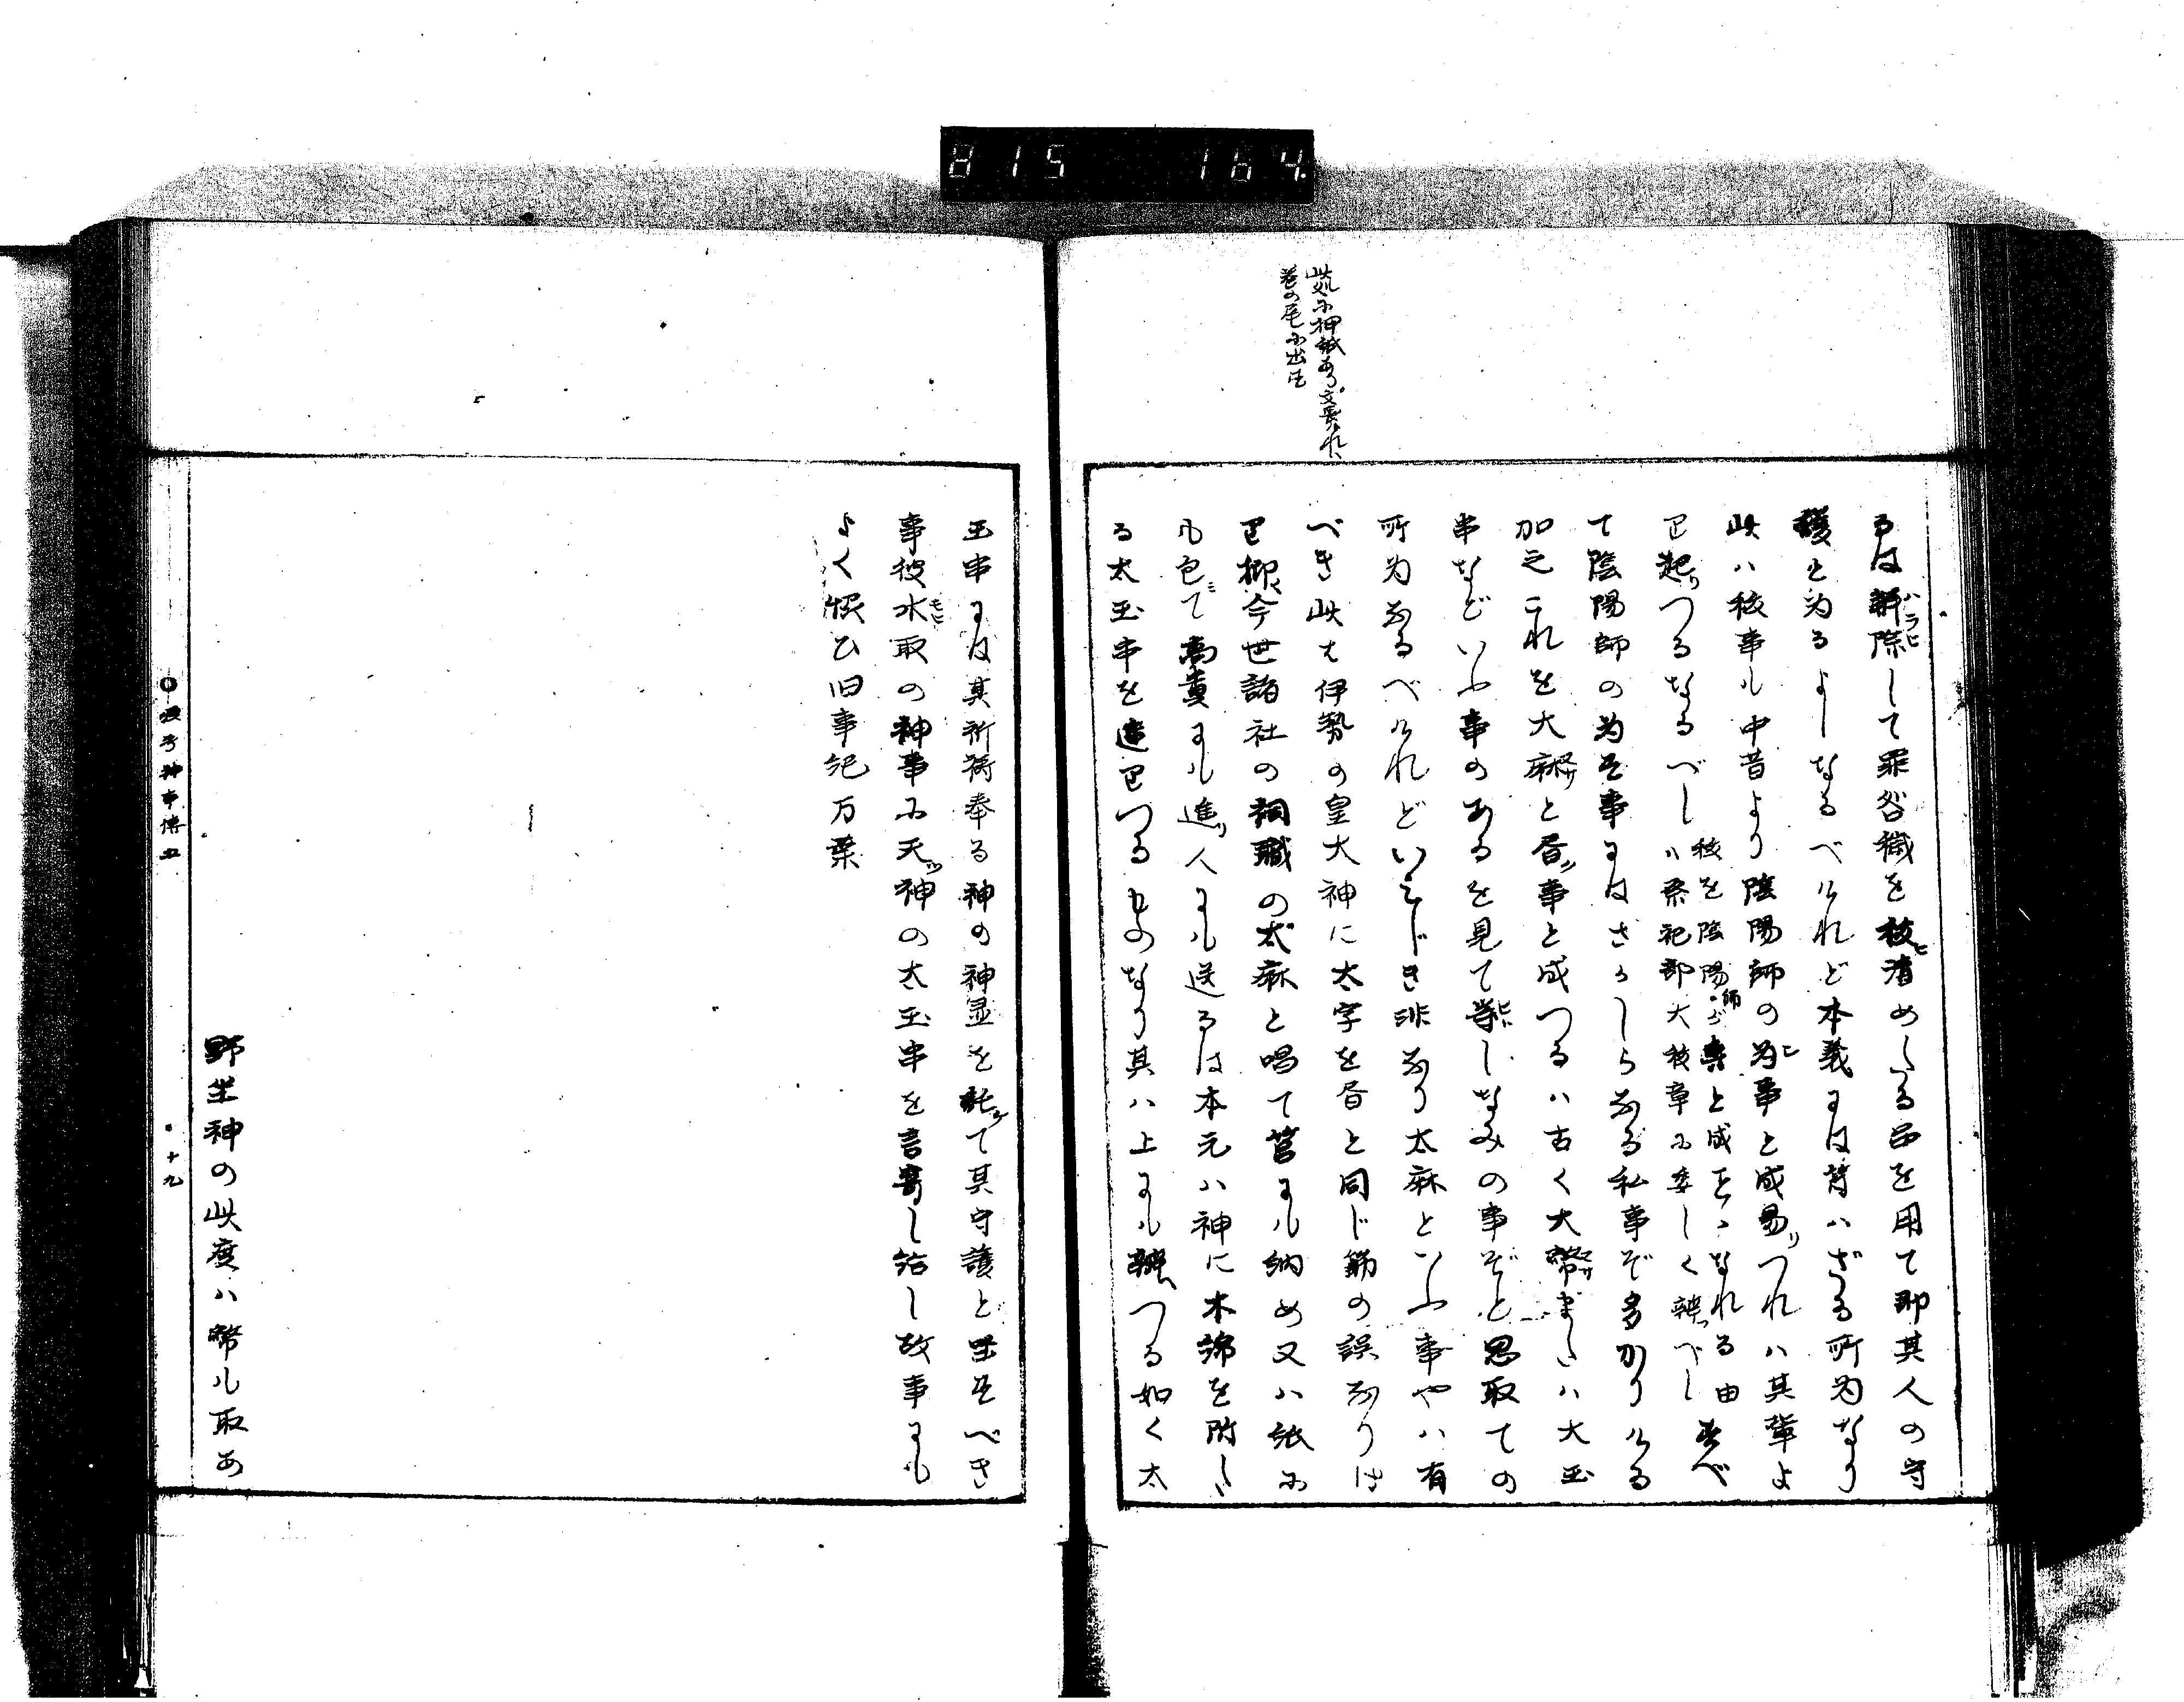 815 164
此処に押紙あり文長ければ
巻の尾に出す
るは解除して罪咎穢を祓清めたる串を用て即其人の守
護と為るよしなるべけれど本義には背ハざる所為なり
此ハ祓事も中昔より陰陽師の為事と成易つれハ其輩よ
り起つるなるべし
祓を陰陽師が事と成せゝなれる由
ハ祭祀部大祓章に委しく辨べし
すべ
て陰陽師の為す事にはさかしらなる私事ぞ多かりける
加之これを大麻と書事と成つるハ古く大幣またハ大玉
串などいふ事のあるを見て等しなみの事ぞと思取ての
所為なるべけれどいみじき非なり太麻といふ事やハ有
べき此も伊勢の皇大神に太字を書と同じ筋の誤なりけ
り抑今世諸社の祠職の太麻と唱て筥にも納め又ハ紙に
も包て高貴にも進人にも送るは本元ハ神に木綿を附た
る太玉串を進りつるものなり其ハ上にも辨つる如く太
玉串には其祈祷奉る神の神霊を託て其守護と坐すべき
事彼水取の神事に天神の太玉串を言寄し給し故事にも
よく候ひ旧事紀万葉
野坐神の此度ハ幣も取あ
神事傳五
十九